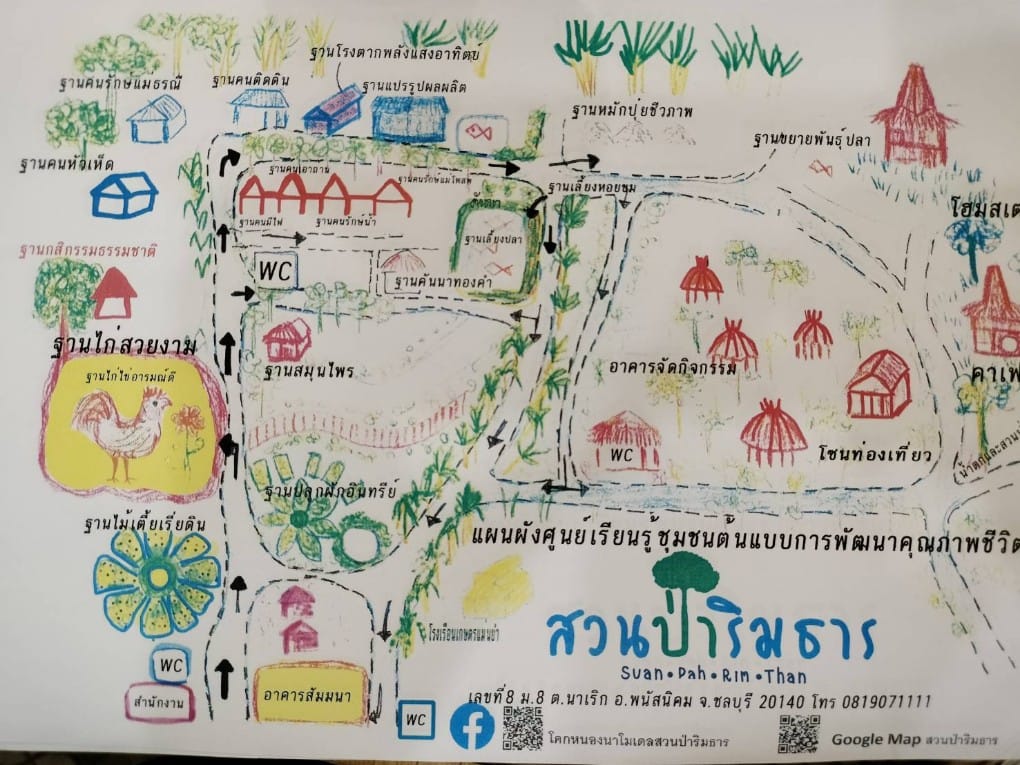 ฐานโรงตากพลังแสงอาทิตย์
ฐานคนรักษ์แม่ธรณี
ฐานคนติดดิน
ฐานแปรรูปผลผลิต
ฐานหมักปุ๋ยชีวภาพ
ฐานขยายพันธุ์ปลา
ฐานคนหัวเห็ด
ฐานคนเอาถ่าน
ฐานคนรักษ์แม่โพสพ
ฐานเลี้ยงหอยขม
ฐานคนมีไฟ
ฐานคนรักษ์น้ำ
ฐานเลี้ยงปลา
โฮมสเต
ฐานกสิกรรมธรรมชาติ
WC
ฐานคันนาทองคำ
ฐานไก่สวยงาม
ฐานไก่ไข่อารมณ์ดี
ฐานสมุนไพร
อาคารจัดกิจกรรม
คาเฟ
WC
โซนท่องเที่ยว
ฐานปลูกผักอินทรีย์
ฐานไม้เตี้ยเรี่ยดิน
แผนผังศูนย์เรียนรู้ชุมชนต้นแบบการพัฒนาคุณภาพชีวิต
สวนป่าริมธาร
Suan • Pah • Rim • Than
WC
สำนักงาน
อาคารสัมมนา
เลขที่ 8 ม.8 ต.นาเริก อ.พนัสนิคม จ.ชลบุรี 20140 โทร 0819071111
WC
โคกหนองนาโมเดลสวนป่าริมธาร
Google Map สวนป่าริมธาร